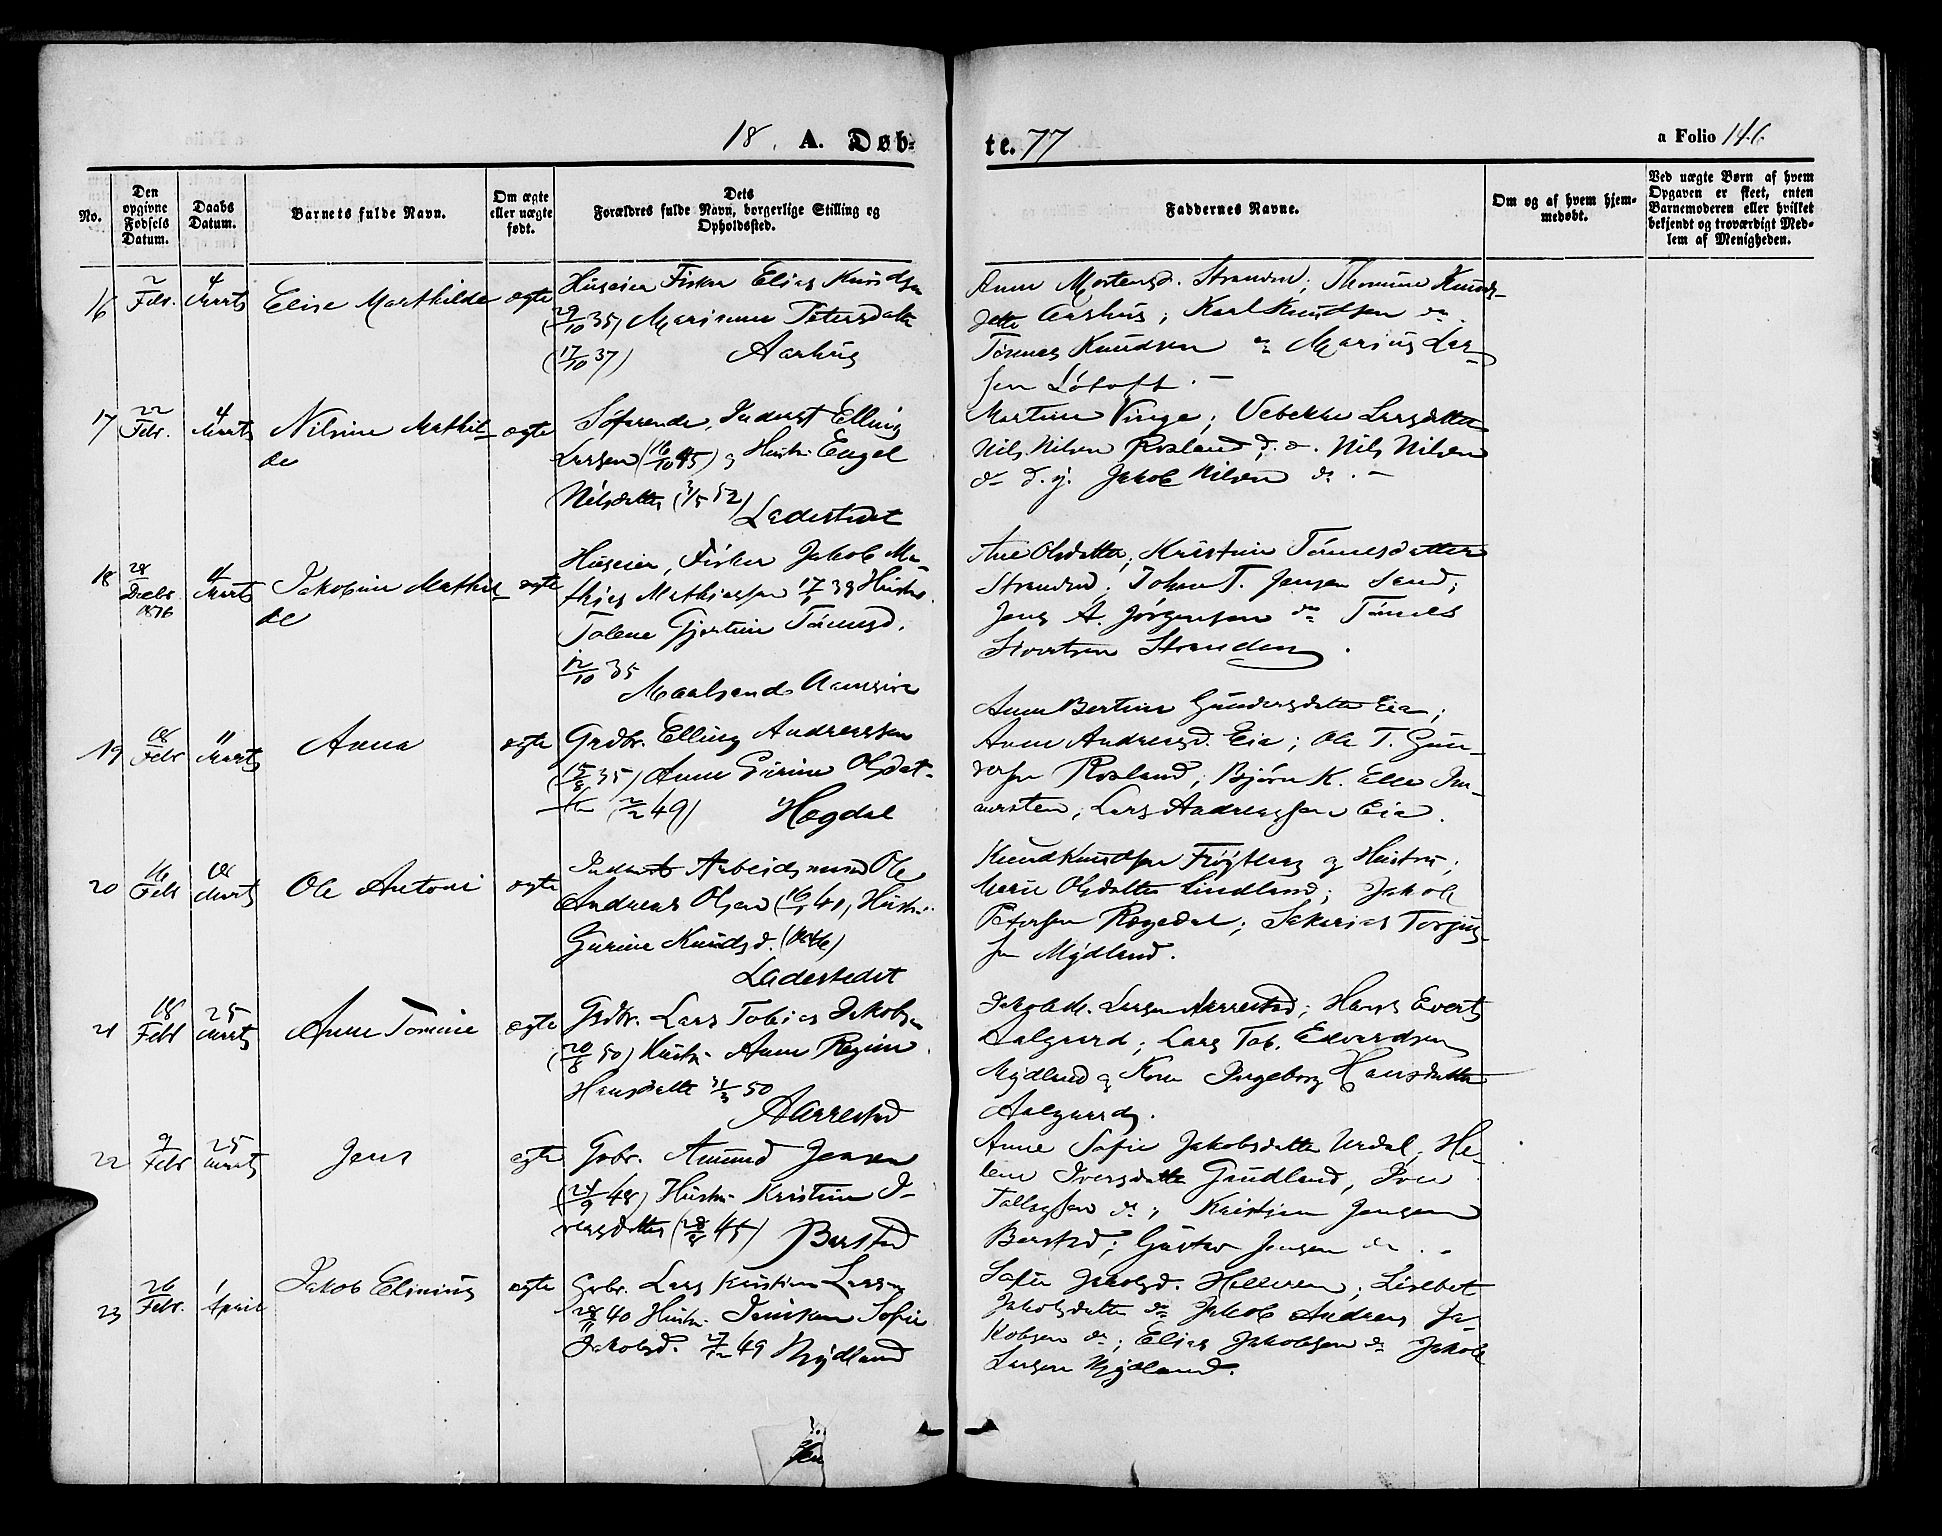 18 A. Døb-
te. 77
a Folio 146
No.
Den opgivne Fødsels Datum.
Daabs Datum.
Barnets fulde Navn.
Om ægte eller uægte født.
Dets Forældres fulde Navn, borgerlige Stilling og Opholdssted.
Faddernes Navne.
Om og af hvem hjem-
medøbt.
Ved uægte Børn af hvem
Opgaven er skeet, enten
Barnemoderen eller hvilket
bekjendt og troværdigt Med-
lem af Menigheden.
16 2 Febr. 4 Marts Elise Marthilde ægte Huseier Fisker Elias Knudsen
(29/10 35) Petersdatter
(17/10 37) Aarhus
Anne Mortensd. Strandnd; Thomine Knuds-
datter Aarhus; Karl Knudsen do
Tønnes Knudsen og Marius Lar-
sen Løtoft. –
17 22 Febr. 4 Marts Nilsine Mathil-
de ægte Søfarende, Inderst Elling
Larsen (16/10 45) og Hustr. Engel
Nilsdatter (3/5 52)
Ladestedet
Martine Vinge; Vebekke Larsdatter
Nils Nilsen Rosland d. æ. Nils Nilsen
do d. y. Jakob Nilsen do. –
18 28 Decbr. 1876 4 Marts Jakobine Mathil-
de ægte Huseier, Fisker Jakob Ma-
thias Mathiassen 39 Hustr.
Tolene Gjertine Tønnesd.
12/10 35
Ane Olsdatter; Kristine Tønnesdatter
Strandnd; Johan T. Jensen Sand;
Jens A. Jørgensen do Tønnes
Sivertsen Stranden.
19 18 Febr 11 Marts Anna ægte Grdbr. Elling Andreassen
(15/8 35) Anne Gurine Olsdat-
ter (2/2 49) Hægdal
Anne Bertine Gundersdatter Eia;
Anne Andreasd. Eia; Ole T. Gun-
dersen Rosland; Bjørn K. Elle
Lars Andreassen Eia.
20 16 Febr 18 Marts Ole Antoni ægte Inderst Arbeidsmand Ole
Andreas Olsen (16/1 41) Hustr.
Gurine Knudsd. (46)
Ladestedet
Knud Knudsen Frøytlog og Hustru;
Marie Olsdatter Lindland; Jakob
Petersen Rægedal; Sakarias Torjus-
sen Mydland.
21 18 Febr 25 Marts Anne Tomine ægte Grdbr. Lars Tobias Jakobsen
(20/8 50) Hustr. Anne Regine
Hansdatter 31/3 50
Aarrestad
Jakob M. Larsen Aarrestad; Hans Evertz
Aalgaard; Lars Tob. Edvardsen
Mydland og Kone Ingeborg Hansdatter
Aalgaard.
22 9 Febr 25 Marts Jens ægte Grbr. Amund Jensen
(24/9 48) Hustr. Kristine I-
versdatter (28/8 45) Barstad
Anne Sofie Jakobsdatter Urdal; He-
lene Iversdatter Gaudland, Iver
Tollagsen do; Kristian Jensen
Barstad; Gustav Jensen do.
23 26 Febr. 1 April Jakob Elinius ægte Grbr. Lars Kristian Larsen
28/11 40 Hustr. Sofie
Jakobsd. 27/12 49 Mydland
Sofie Jakobsd. Helleren; Lisebet
Jakobsdatter do Jakob Andreas Ja-
kobsen do; Elias Jakobsen do Jakob
Larsen Mydland.